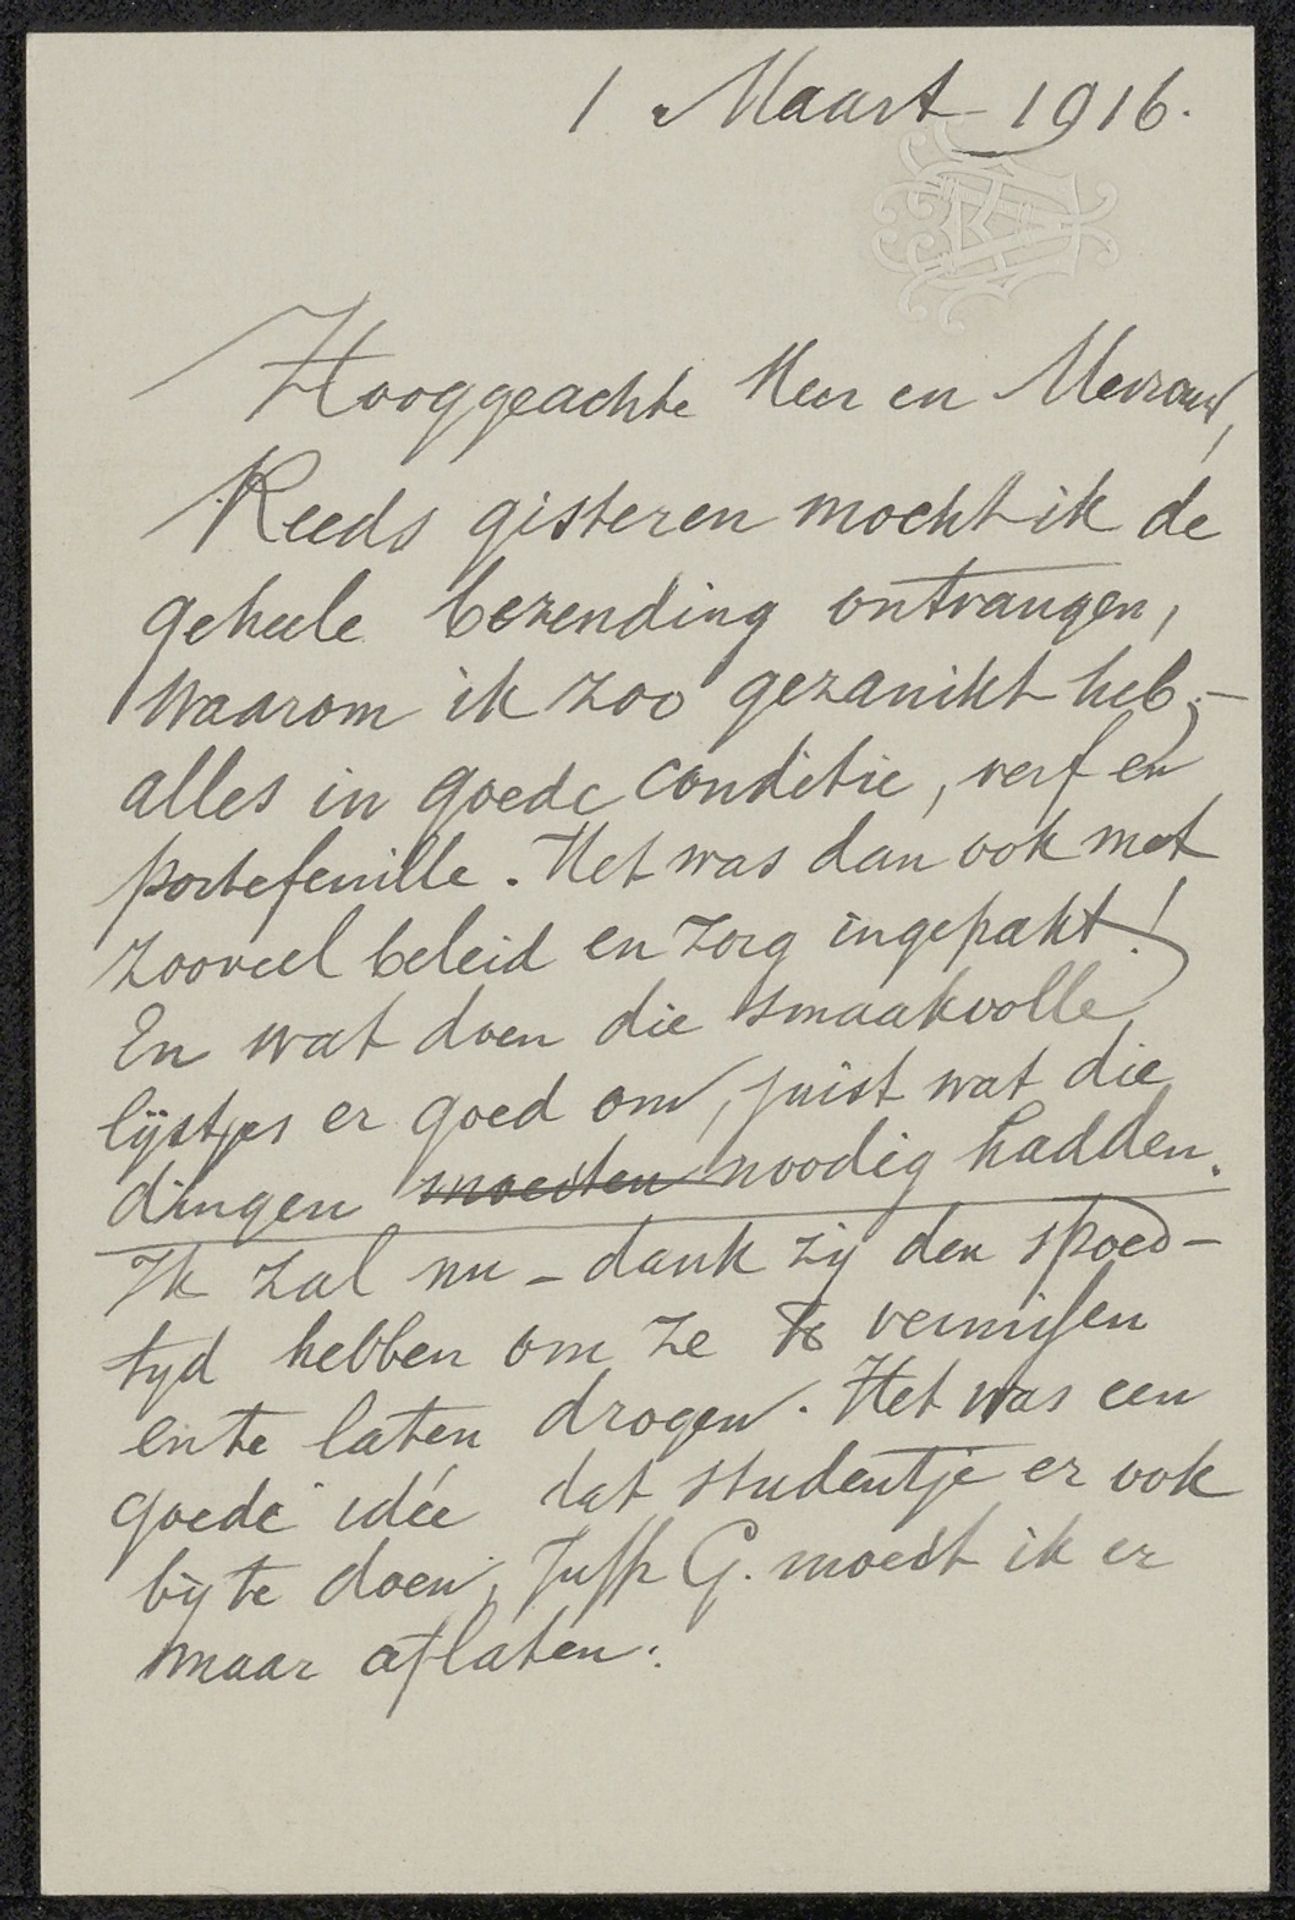 1 Maart 1916.
Hooggeachte Heer en Mevrouw,
Reeds gisteren mocht ik de
geheele bezending ontvangen,
waarom ik zoo gezanikt heb;—
alles in goede conditie, verf en
portefeuille. Het was dan ook met
zooveel beleid en zorg ingepakt!
En wat doen die smaakvolle
lijstjes er goed om, juist wat die
dingen moesten noodig hadden.
Ik zal nu – dank zij den spoed –
tyd hebben om ze te vernissen
en te laten drogen. Het was een
goede idée dat studentje er ook
bij te doen, Juffr G. moest ik er
maar aflaten.